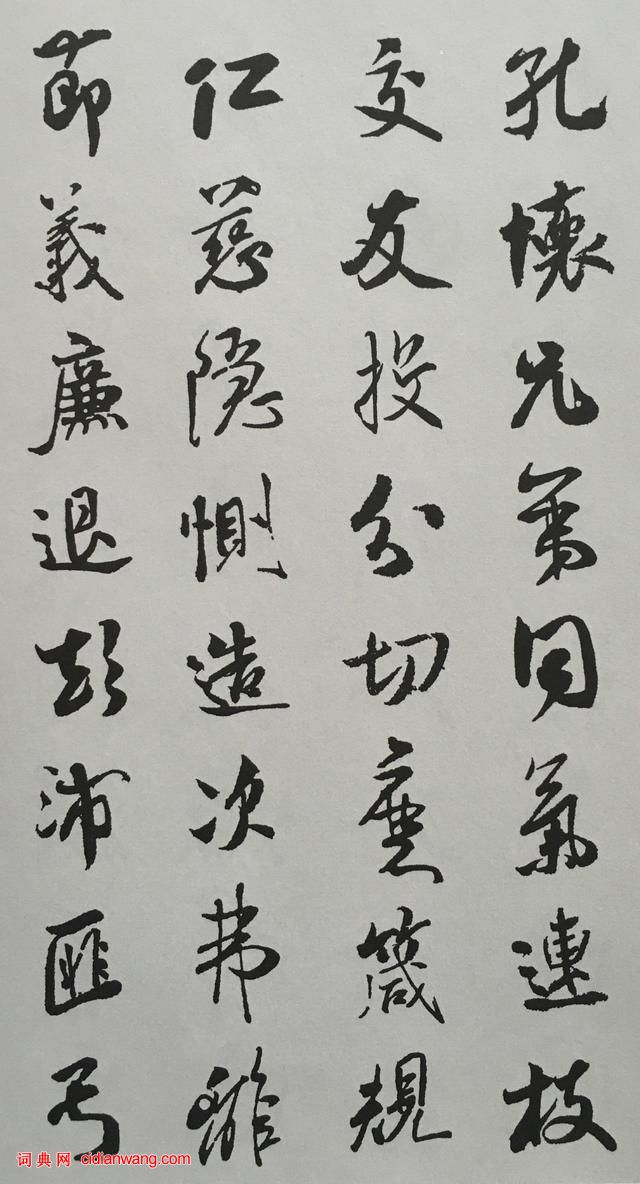 孔懷兄弟同氣連枝
交友投分切磨箴規
仁慈隱惻造次弗離
節義廉退顛沛匪亏
词典网 cidianwang.com